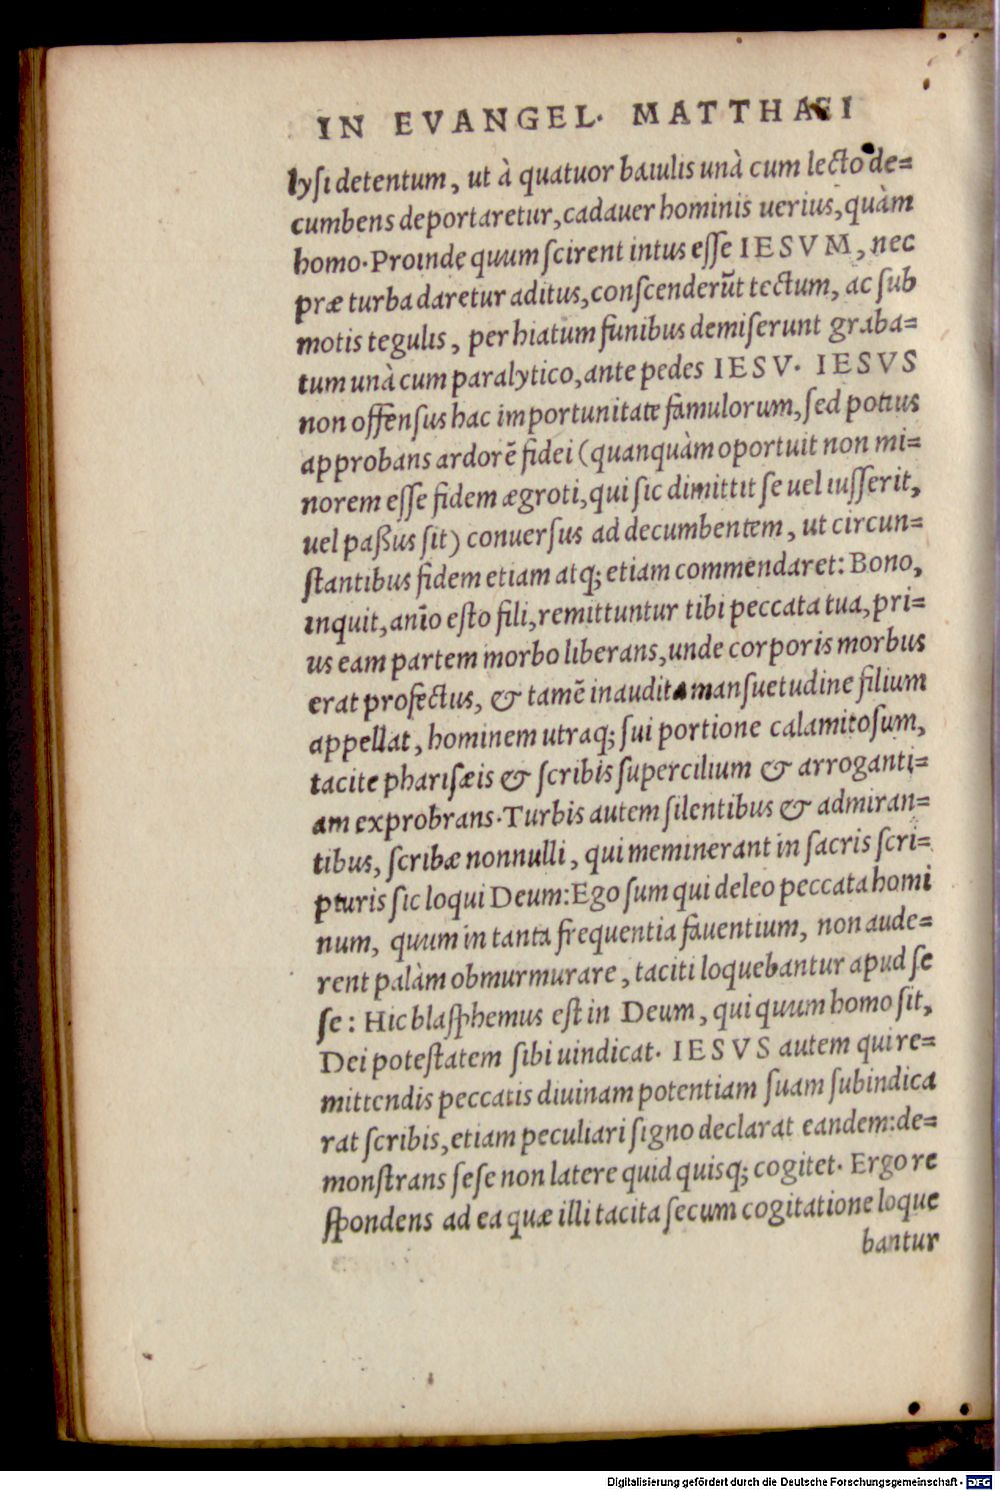 IN EVANGEL. MATTHAEI
lysi detentum, ut à quatuor baiulis unà cum lecto de=
cumbens deportaretur, cadauer hominis uerius, quàm
homo. Proinde quum scirent intus esse IESVM, nec
præ turba daretur aditus, conscenderūt tectum, ac sub
motis tegulis, per hiatum funibus demiserunt graba=
tum unà cum paralytico, ante pedes IESV. IESVS
non offensus hac importunitate famulorum, sed potius
approbans ardorē fidei (quanquàm oportuit non mi=
norem esse fidem ægroti, qui sic dimittit se uel iusserit,
uel paßus sit) conuersus ad decumbentem, ut circun=
stantibus fidem etiam atq; etiam commendaret: Bono,
inquit, anīo esto fili, remittuntur tibi peccata tua, pri=
us eam partem morbo liberans, unde corporis morbus
erat profectus, & tamē inaudita mansuetudine filium
appellat, hominem utraq; sui portione calamitosum,
tacite pharisæis & scribis supercilium & arroganti=
am exprobrans. Turbis autem silentibus & admiran=
tibus, scribæ nonnulli, qui meminerant in sacris scri=
pturis sic loqui Deum: Ego sum qui deleo peccata homi
num, quum in tanta frequentia fauentium, non aude=
rent palàm obmurmurare, taciti loquebantur apud se
se: Hic blasphemus est in Deum, qui quum homo sit,
Dei potestatem sibi uindicat. IESVS autem qui re=
mittendis peccatis diuinam potentiam suam subindica
rat scribis, etiam peculiari signo declarat eandem: de=
monstrans sese non latere quid quisq; cogitet. Ergo re
spondens ad ea quæ illi tacita secum cogitatione loque
bantur
Digitalisierung gefördert durch die Deutsche Forschungsgemeinschaft - DFG